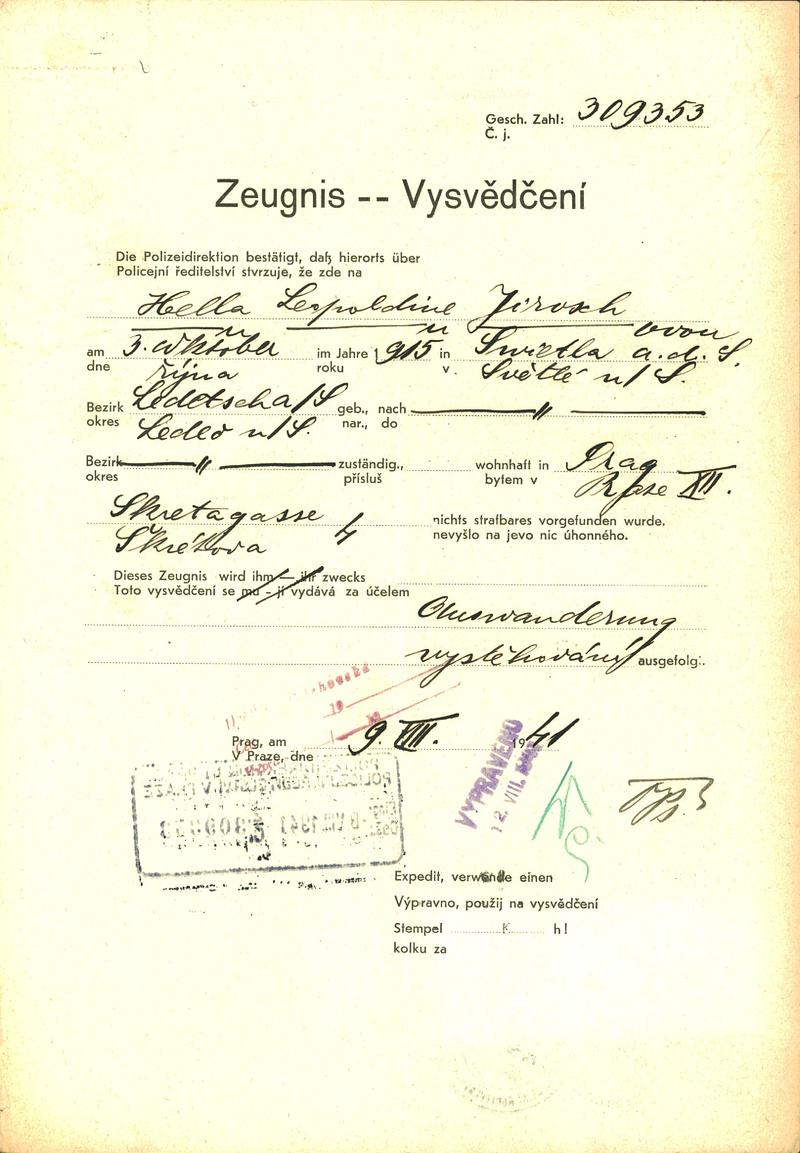 Gesch. Zahl: 309353
Č. j.
Zeugnis -- Vysvědčení
Die Polizeidirektion bestätigt, daß hierorts über
Policejní ředitelství stvrzuje, že zde na
Hella Leopoldine Jirosch
ovou
am 3. Oktober im Jahre 1915 in Swietla a.d. S.
dne října roku v. Světlé n/S.
Bezirk Ledetscha/S geb., nach — " —
okres Ledeč n/S. nar., do
Bezirk — " — zuständig., wohnhaft in Prag
okres přísluš bytem v Praze XII.
Skretagasse 4 nichts strafbares vorgefunden wurde.
Škrétova nevyšlo na jevo nic úhonného.
Dieses Zeugnis wird ihm — ihr zwecks
Toto vysvědčení se mu - jí vydává za účelem
Auswanderung
vystěhování ausgefolg.
Prag, am 9. VIII. 1941
V Praze, dne
VYPRAVENO
12. VIII.
Expedit, verwende einen
Výpravno, použij na vysvědčení
Stempel K h!
kolku za